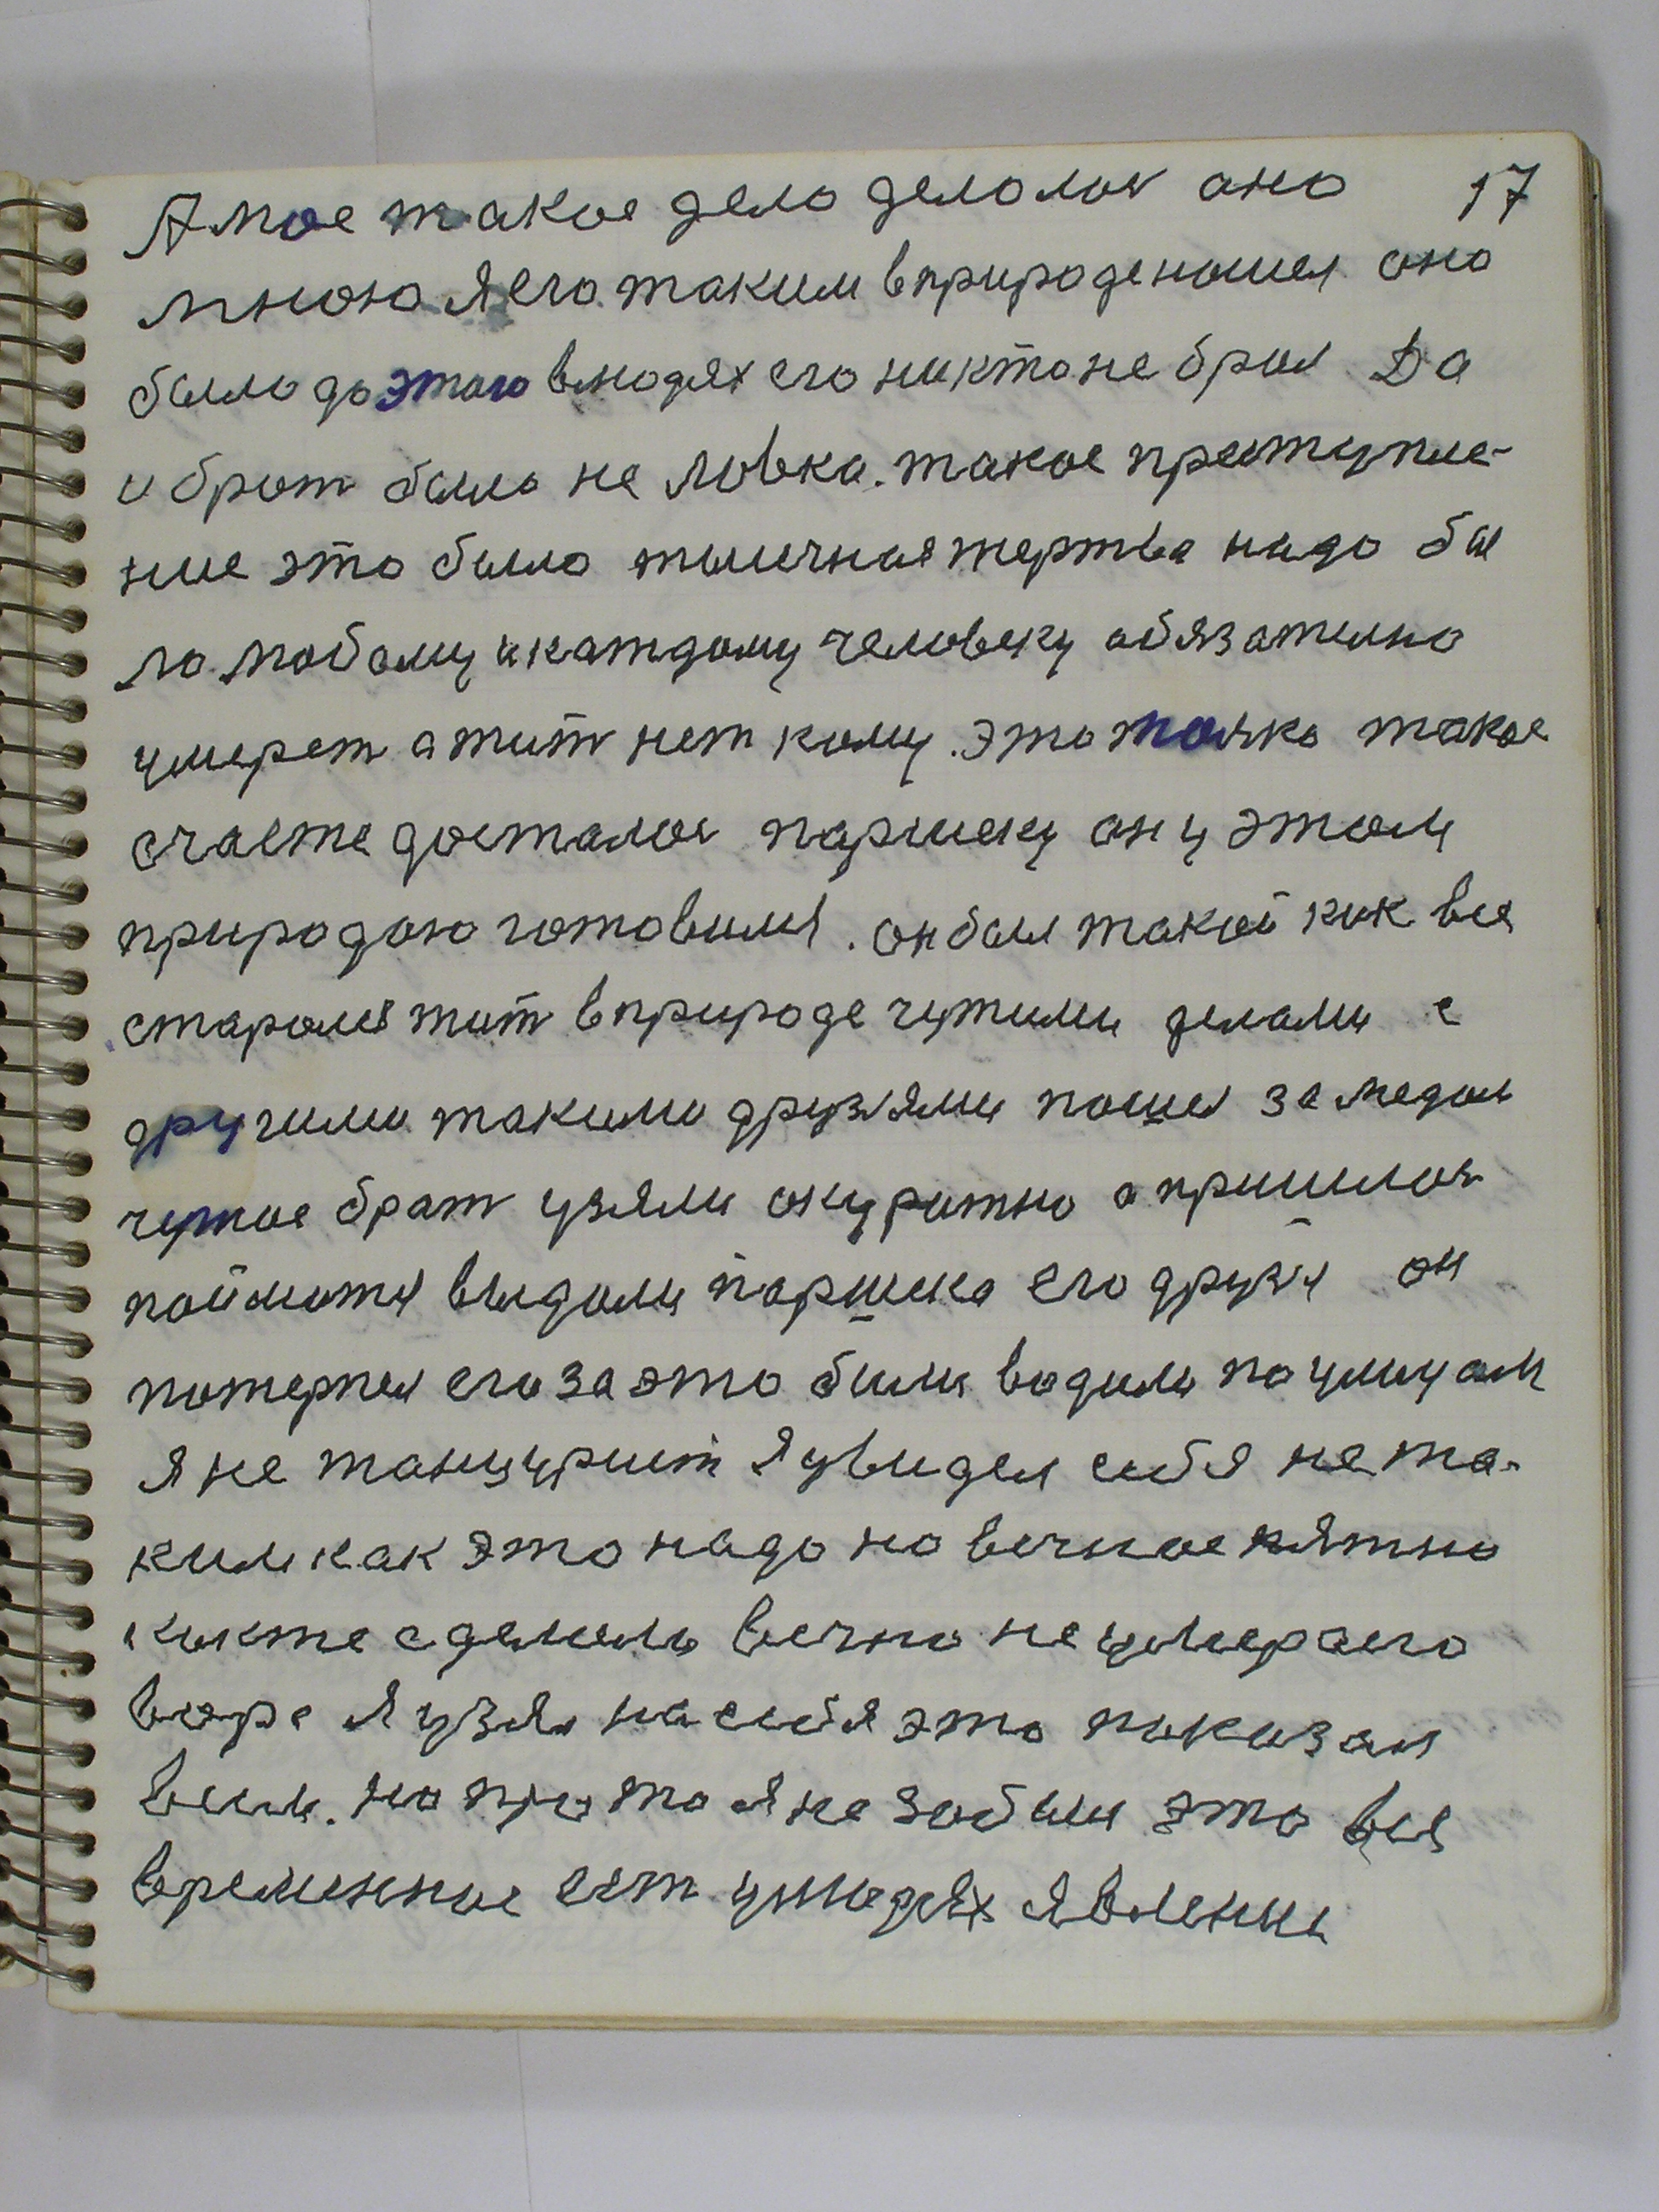 А мое такое дело делолос ано 17
мною я его таким в природе нашел оно
было до этого в людях его никто не брал Да
и брат было не ловка. такое преступле-
ние это было тыичная жертва надо бы
ло любому и каждому человеку обязателно
умерет а жит нет кому. это толко такое
счастя досталос паршеку он у этом
природою готовился. он был такой как вся
старался жит в природе чужими делами с
другими такими друзями пошел за медом
чужое брат узяли окуратно а пришлос
пойматся выдали паршека его друзя он
потерпел его за это били водили по улицам
я не танцурист я увидел себя не та-
ким как это надо но вечное пятно
как же сделал вечно не умераего
воре я узял на себя это показал
всем. но про то я не забыл это вся
временное ест у людях явление